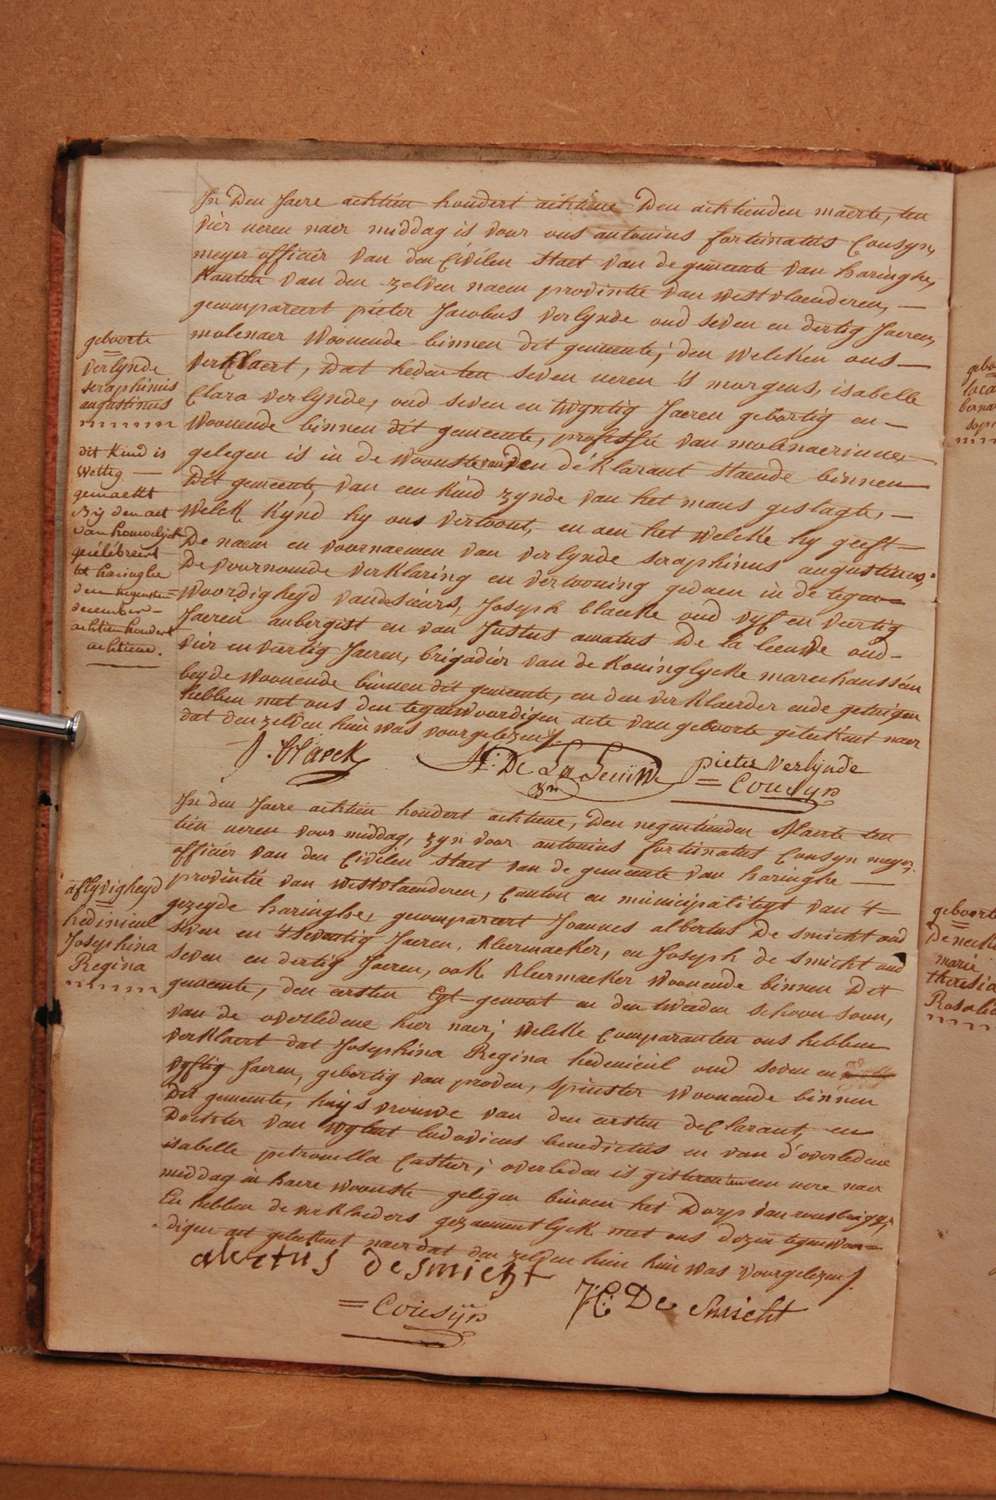 In den Jaere achtien hondert achtiene den achtienden maerte, ten
vier ueren naer middag is voor ons antonius fortunatus Cousyn,
meyer officier van den Civilen staet van de gemeente van haringhe,
Kanton van den zelven naem provintie van westvlaenderen, —
gecompareert pieter Jacobus verlynde oud seven en dertig Jaeren,
molenaer woonende binnen dit gemeente; den welcken ons —
verklaert, dat heden ten seven ueren 's morgens, isabelle
Clara verlynde, oud seven en twyntig Jaeren gebortig en —
woonende binnen dit gemeente, professie van molenaerinne —
gelegen is in de woonste van den déklarant staende binnen
dit gemeente, van een kind zynde van het mans geslagte, —
welck kynd hy ons vertoont, en aen het welcke hy geeft —
de naem en voornaemen van verlynde seraphinus augustinus,
de voornoemde verklaring en vertooning gedaen in de tegen =
woordigheyd van de sieurs, Joseph blaecke oud vyf en viertig
Jaeren aubergist en van Justus amatus De la leeuwe oud —
vier en viertig Jaeren, brigadier van de Koninglycke marechaussée
beyde woonende binnen dit gemeente, en den verklaerder ende getuigen
hebben met ons den tegenwoordigen acte van geboorte geteekent naer
dat den zelven hun was voorgelezen.
J. Blaeck
De La Leuiwe
pieter Verlynde
= Cousyn
geboorte
=
verlynde
seraphinus
augustinus
dit Kind is
wettig —
gemaekt
bij den act
van houwelijck
gecélébreert
te haringhe
den
december —
achtien hondert
achtiene.
In den Jaere achtien hondert achtiene, den negentienden Maerte ten
tien ueren voor middag, zyn voor antonius fortunatus Cousyn meyer
officier van den Civilen staet van de gemeente van haringhe —
provintie van westvlaenderen, canton en municipaliteyt van 't =
gezeyde haringhe, gecompareert Joannes albertus De smicht oud
seven en 't seventig Jaeren, kleermaeker, en Joseph de smicht oud
seven en dertig Jaeren, ook kleermaeker woonende binnen dit
gemeente, den eersten Egt-genoot en den tweeden schoon soon,
van de overledene hier naer; welcke comparanten ons hebben
verklaert dat Josephina Regina hedenieul oud seven en
vyftig Jaeren, gebortig van proven, spinster woonende binnen
dit gemeente, huysvrouwe van den eersten declarant, en
Dochter van wylent ludovicus benedictus en van d'overledene
isabelle petronella Castier; overleden is gisteren een uere naer
middag in haere woonste gelegen binnen het Dorp van rousbrigge,
En hebben de verklaeders gezaementlyck met ons dezen tegenwoor =
digen act geteekent naer dat den zelven hun was voorgelezen.
albertus desmicht
J: De Smicht
= Cousyn
aflyvigheyd
=
hedinieul
Josephina
Regina
geboorte
=
marie
theresia
Rosalie